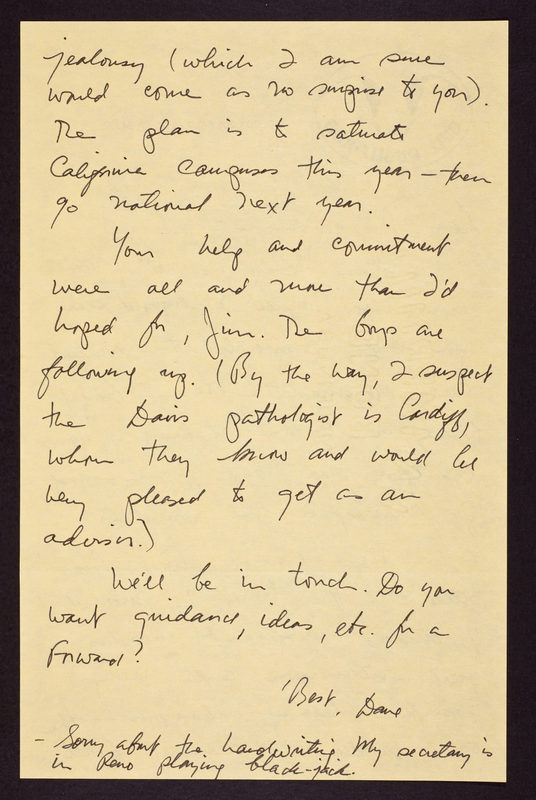 jealousy (which I am sure
would come as no surprise to you).
The plan is to saturate
California campuses this year – then
go national next year.
Your help and commitment
were all and more than I'd
hoped for, Jim. The boys are
following up. (By the way, I suspect
the Davis pathologist is Cardiff,
whom they know and would be
very pleased to get as an
advisor.)
We'll be in touch. Do you
want guidance, ideas, etc. for a
Forward?
Best, Dave
- Sorry about the handwriting. My secretary is
in Reno playing black-jack.